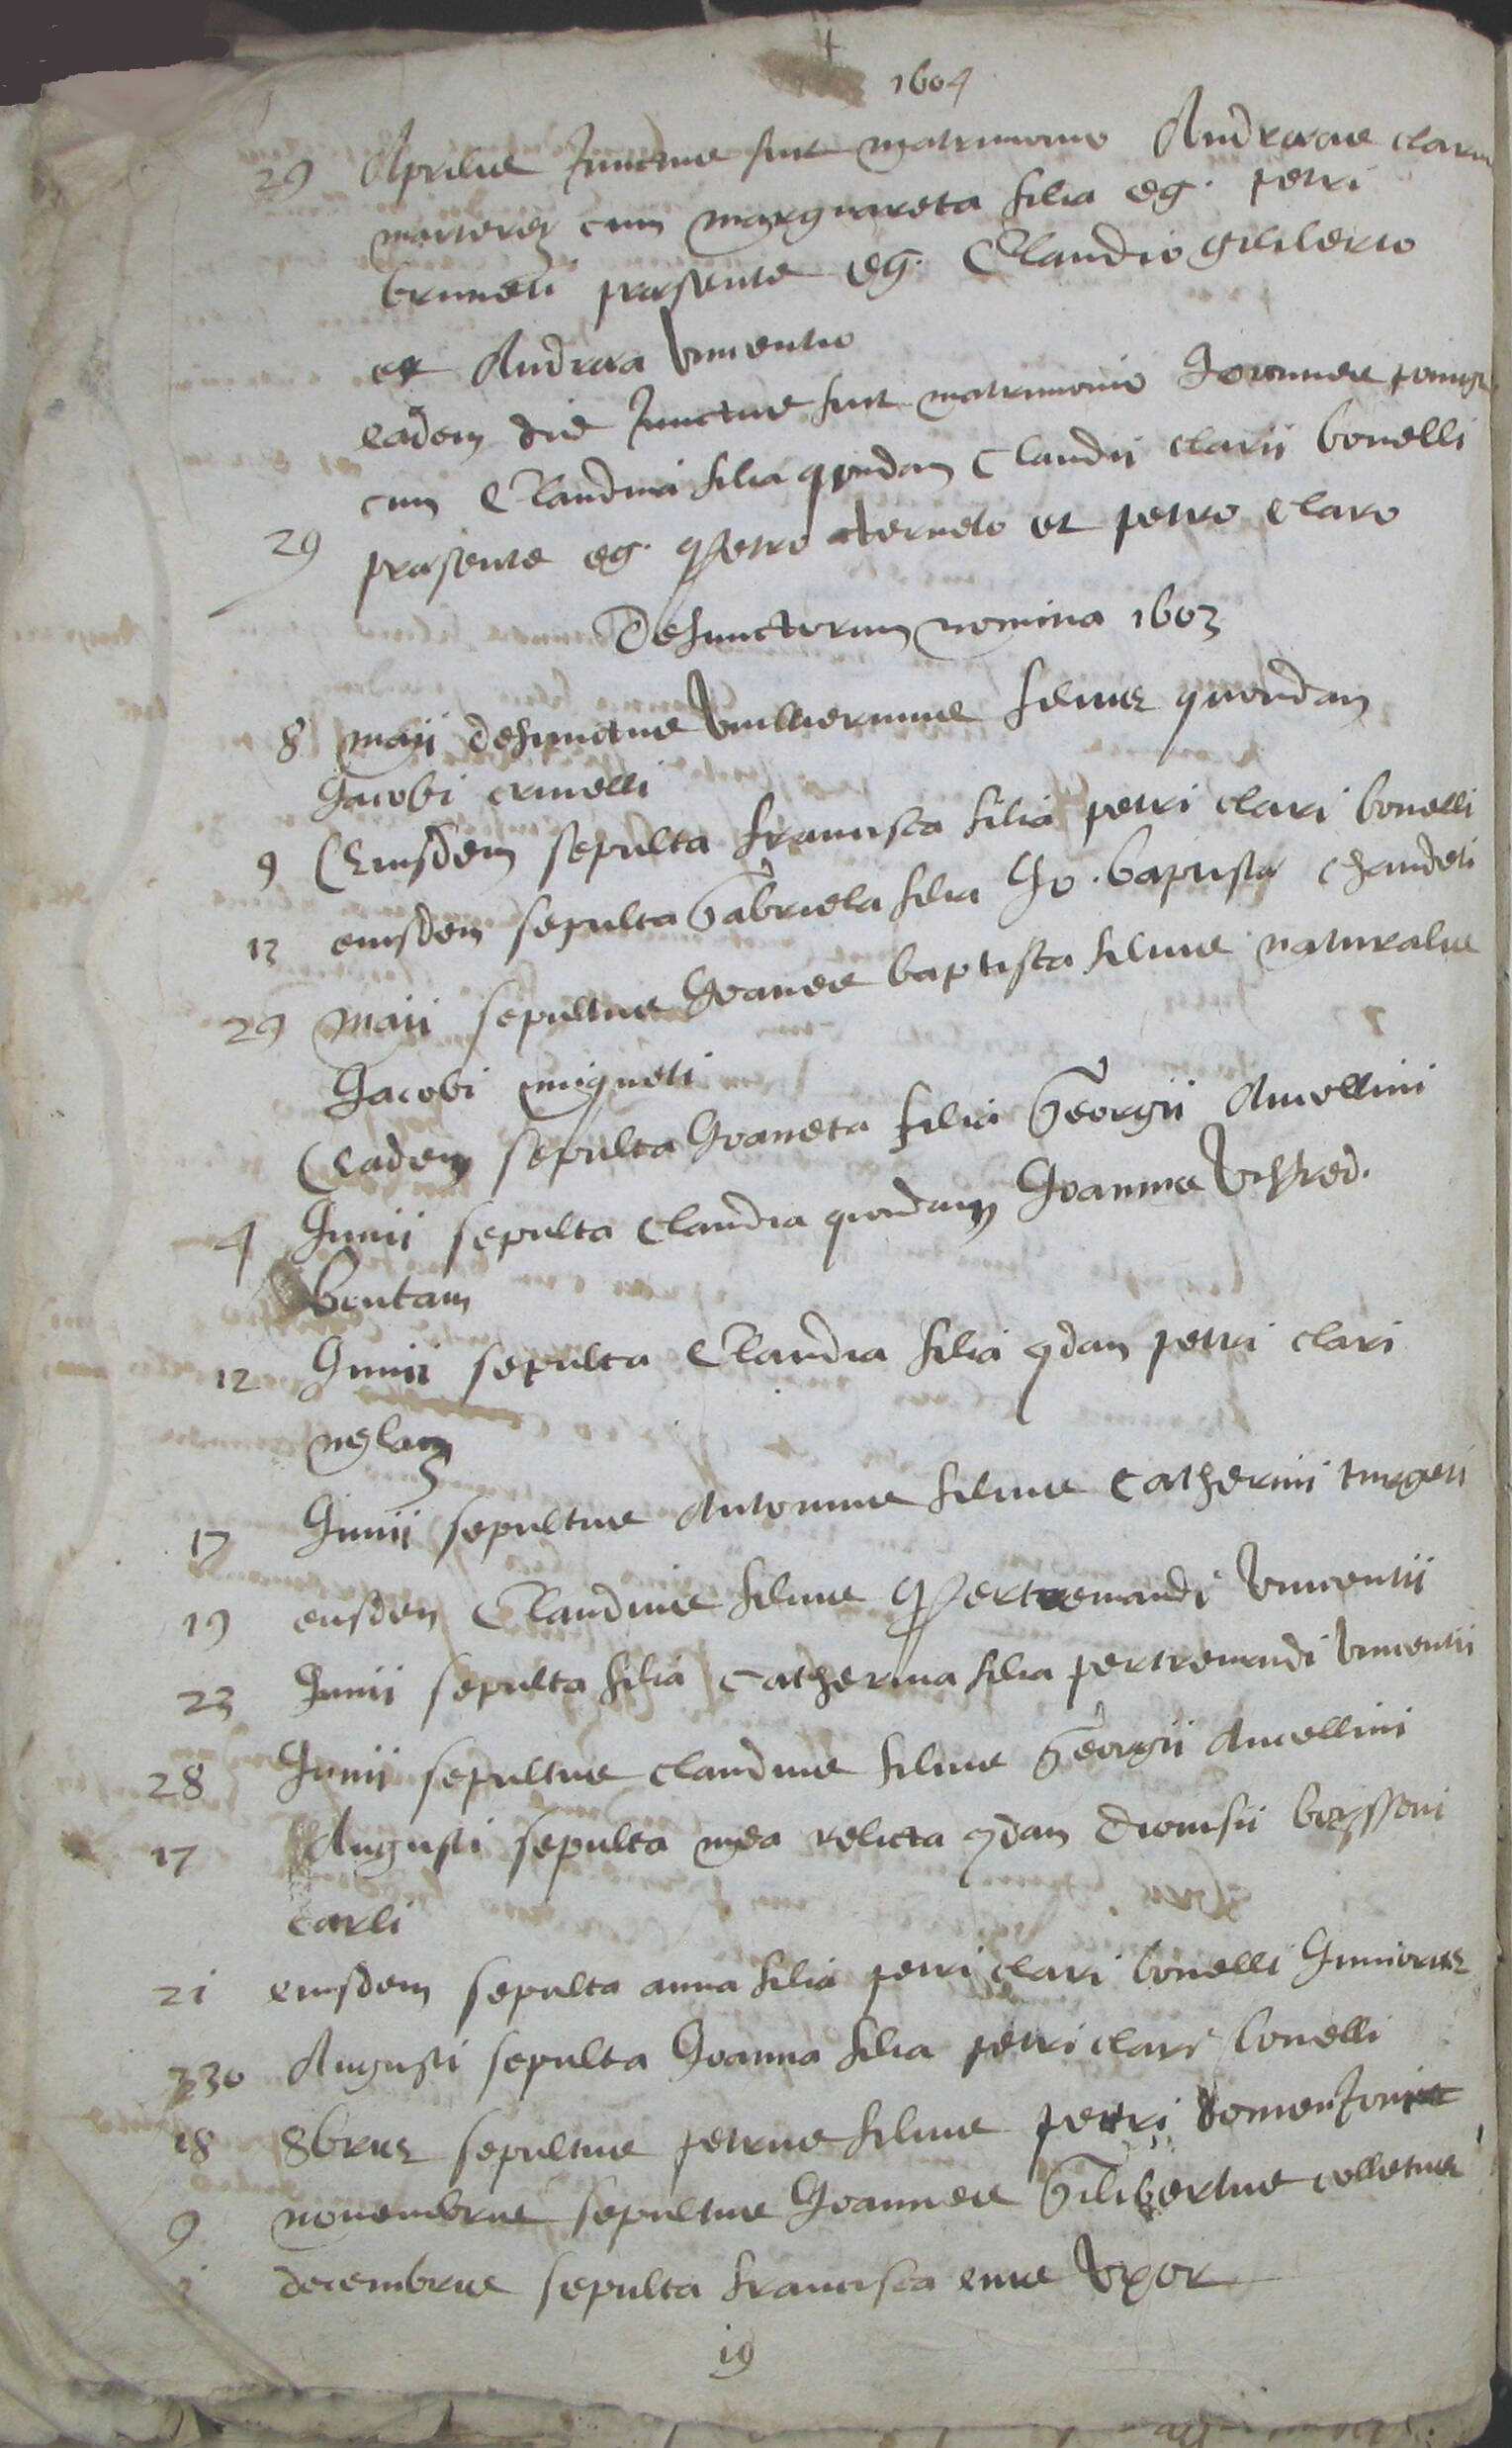 1604
29 Aprilis Junctus fuit matrimonio Andreas clarus
cum marguareta filia eg. petri
bruneti præsente eg. Claudio gililerto
et Andrea vincentio
eadem die Junctus fuit matrimonio Joannes
cum Claudina filia quondam Claudii clarii bonelli
29 præsente eg. Petro et petro claro
Defunctorum nomina 1603
8 maii defunctus vulliermus filius quondam
Jacobi
9 Eiusdem sepulta francisca filia petri clari bonelli
12 eiusdem sepulta Gabriela filia Jo. baptistæ chandeti
29 maii sepultus Joanes baptista filius naturalis
Jacobi migneti
Eadem sepulta Joaneta filia Georgii Ancellini
4 Junii sepulta Claudia quondam Joannis
12 Junii sepulta Claudia filia qdam petri clari
17 Junii sepultus Antonius filius Catherini turgeti
19 eiusdem Claudius filius Pertremandi vincentii
23 Junii sepulta filia Catherina filia pertremandi vincentii
28 Junii sepultus claudius filius Georgii Ancellini
17 Augusti sepulta relicta qdam Dionisii
carli
21 eiusdem sepulta anna filia petri clari bonelli Junioris
30 Augusti sepulta Joanna filia petri clari bonelli
18 8bris sepultus petrus filius petri
9 novembris sepultus Joannes Gilibertus colletus
i decembris sepulta francisca eius vxor
19